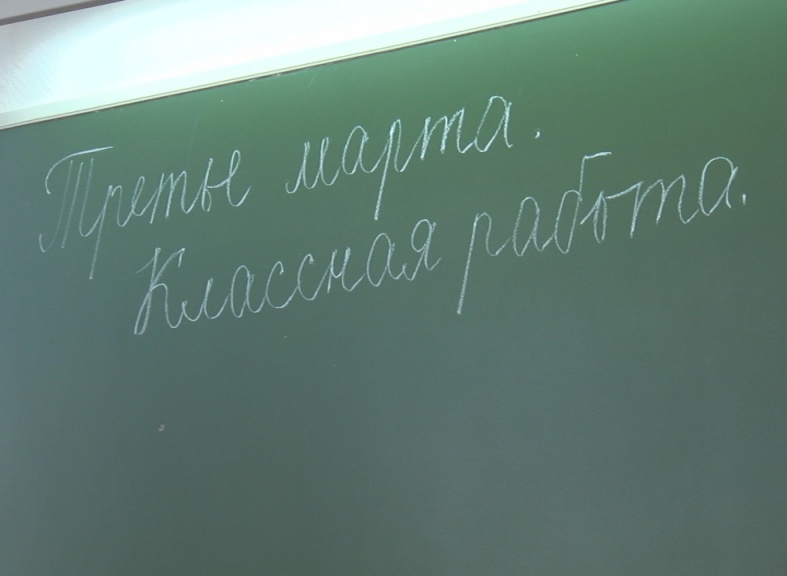 Третье марта.
Классная работа.